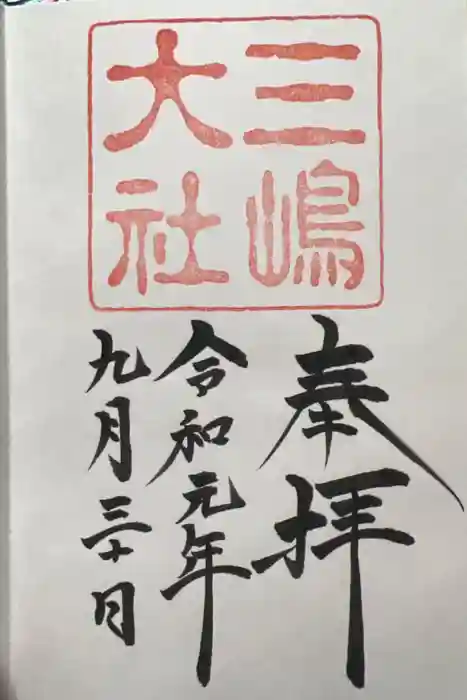 三嶋
大社
奉拝
令和元年
九月三十日